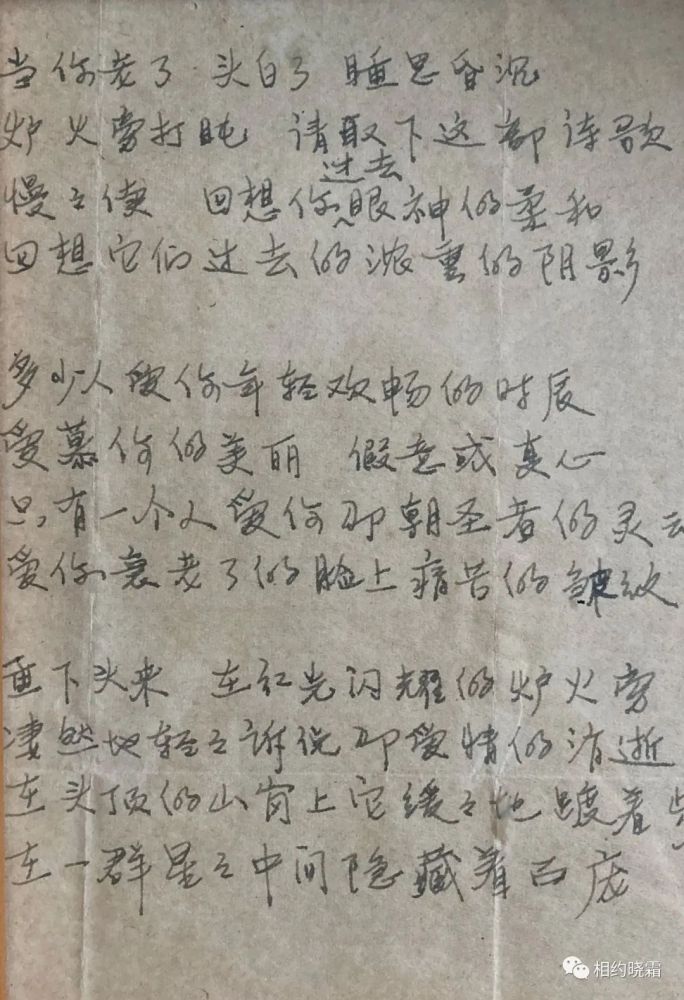 当你老了 头白了 睡思昏沉
炉火旁打盹 请取下这部诗歌
慢々读 回想你过去眼神的柔和
回想它们过去的浓重的阴影
多少人爱你年轻欢畅的时辰
爱慕你的美丽 假意或真心
只有一个人爱你那朝圣者的灵
爱你衰老了的脸上痛苦的皱纹
垂下头来 在红光闪耀的炉火旁
凄然地轻々诉说那爱情的消逝
在头顶的山岗上它缓々地踱着
在一群星々中间隐藏着
相约晓霜